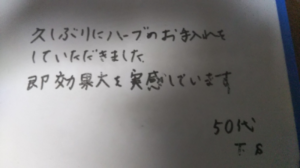 久しぶりにハーブのお手入れを
していただきました
即効果大を実感しています
50代
T.S